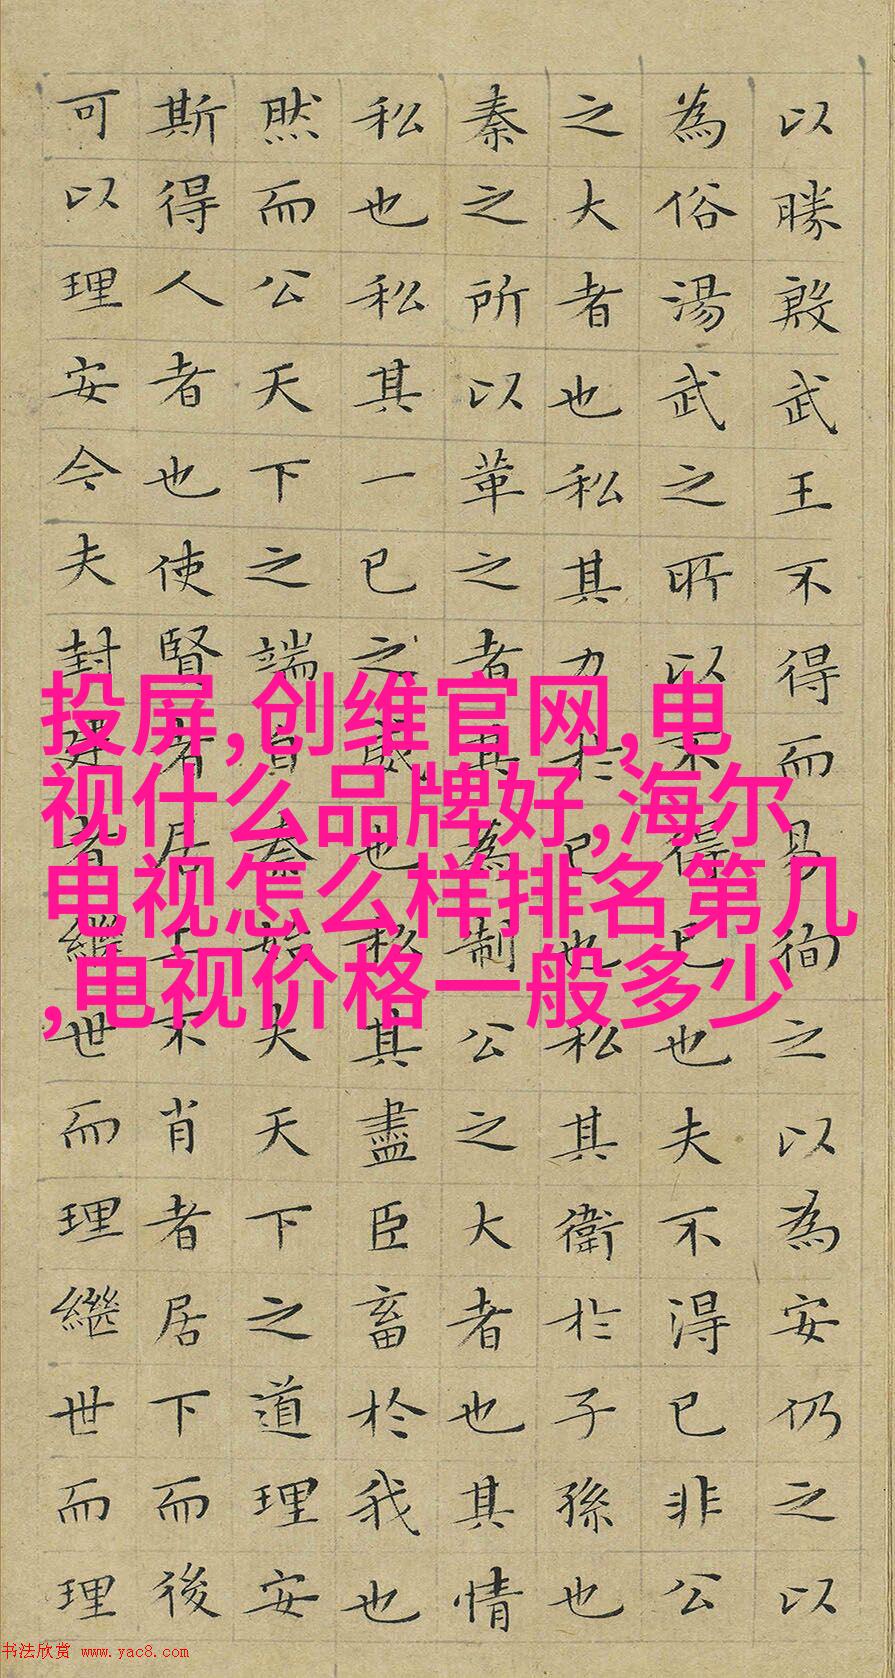 以勝殷武王不得而易徇之以為安仍之以
為俗湯武之所以不得已也夫不得已非公
之大者也私其力於已也私其衛於子孫也
秦之所以革之者其為制公之大者也其情
私也私其一已之威也私其盡臣畜於我也
然而公天下之端自秦始夫天下之道理安
斯得人者也使賢者居上不肖者居下而後
可以理安今夫封建者繼世而理繼世而理
投屏,创维官网,电
视什么品牌好,海尔
电视怎么样排名第几
,电视价格一般多少
书法欣赏 www.yac8.com